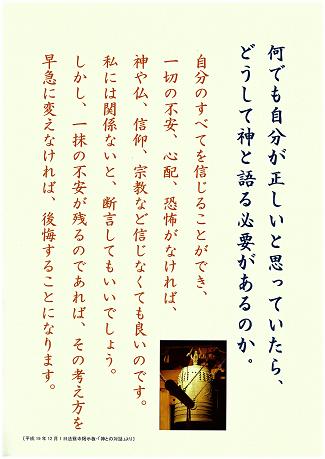 何でも自分が正しいと思っていたら、
どうして神と語る必要があるのか。
自分のすべてを信じることができ、
一切の不安、心配、恐怖がなければ、
神や仏、信仰、宗教など信じなくても良いのです。
私には関係ないと、断言してもいいでしょう。
しかし、一抹の不安が残るのであれば、その考え方を
早急に変えなければ、後悔することになります。